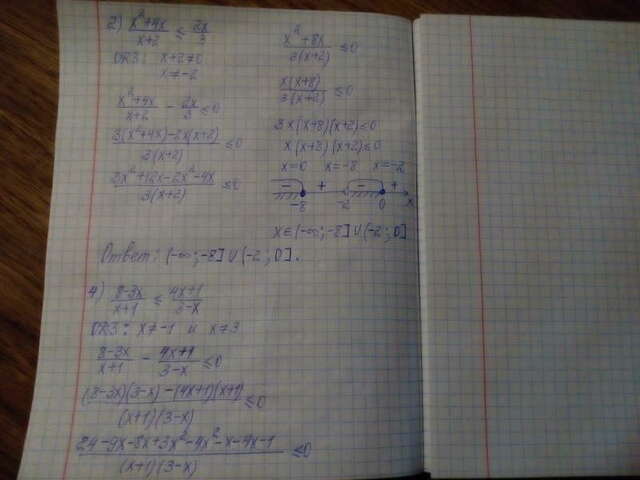 2) (x²+4x)/(x+2) ≤ 2x/3
ОДЗ: x+2≠0
x≠-2
(x²+4x)/(x+2) - 2x/3 ≤0
(3(x²+4x)-2x(x+2))/(3(x+2)) ≤0
(3x²+12x-2x²-4x)/(3(x+2)) ≤0
(x²+8x)/(3(x+2)) ≤0
(x(x+8))/(3(x+2)) ≤0
3x(x+8)(x+2)≤0
x(x+8)(x+2)≤0
x=0 x=-8 x=-2
- + - +
-8 -2 0 x
x∈(-∞;-8]∪(-2;0]
Ответ: (-∞;-8]∪(-2;0].
4) (8-3x)/(x+1) ≤ (4x+1)/(3-x)
ОДЗ: x≠-1 и x≠3
(8-3x)/(x+1) - (4x+1)/(3-x) ≤0
((8-3x)(3-x)-(4x+1)(x+1))/((x+1)(3-x)) ≤0
(24-9x-8x+3x²-4x²-x-4x-1)/((x+1)(3-x)) ≤0